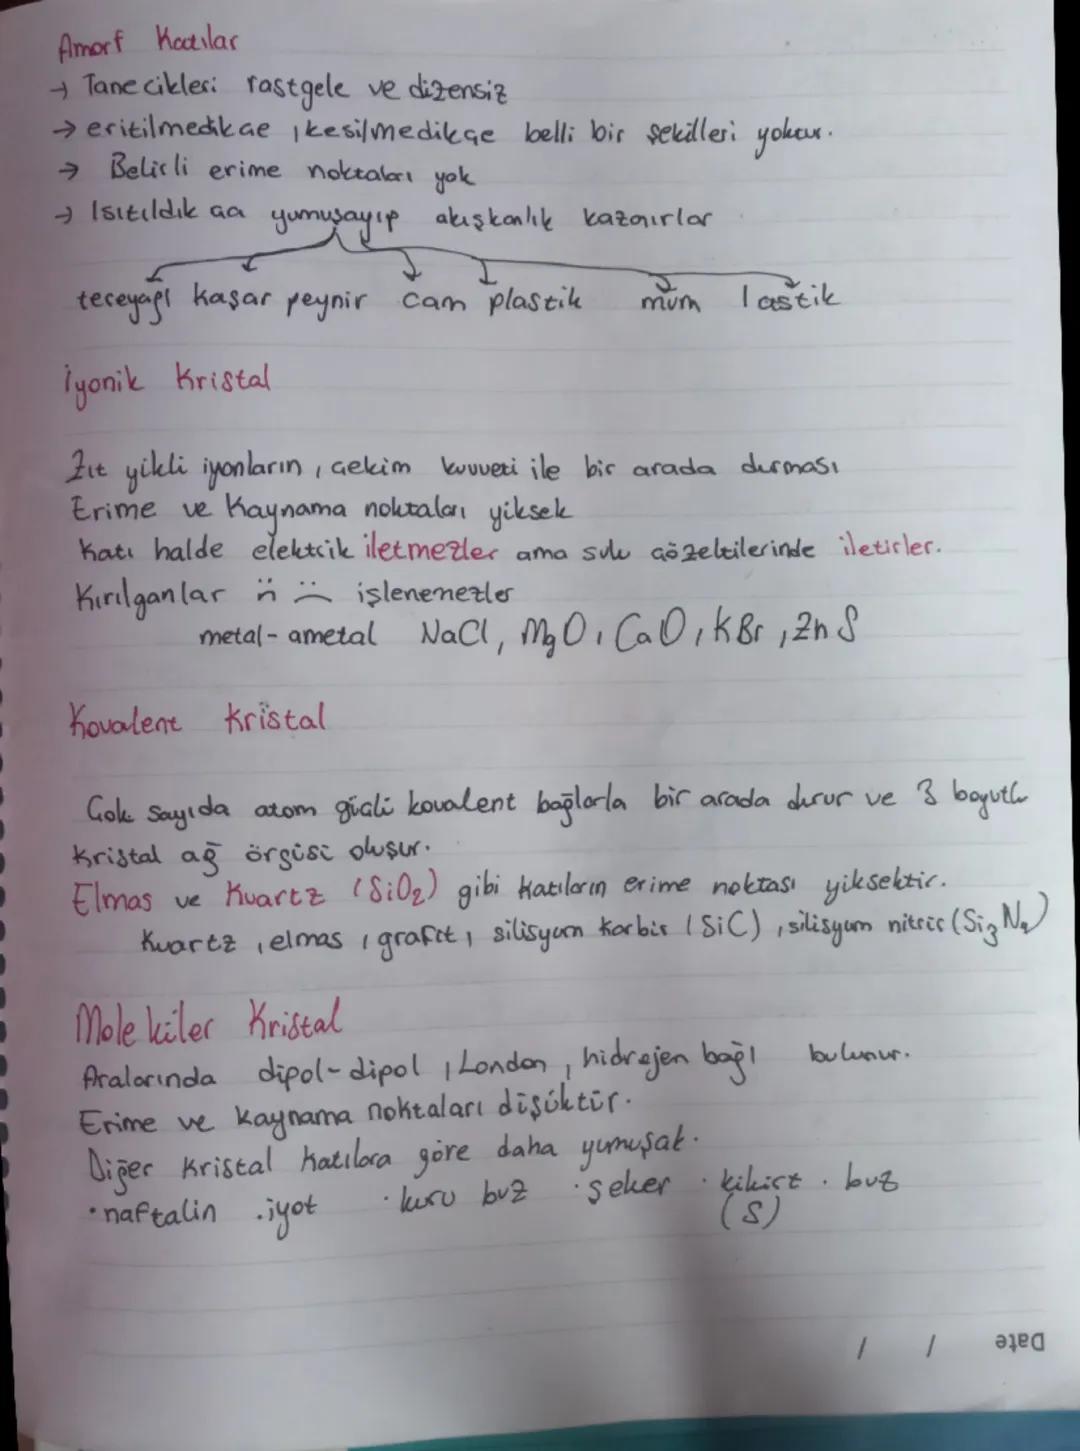 Amorf Katılar
→ Tanecikleri rastgele ve düzensiz
→ eritilmedikçe, kesilmedikçe belli bir şekilleri yoktur.
→ Belirli erime noktaları yok
→ Isıtıldıkça yumuşayıp akışkanlık kazanırlar
tereyağı kaşar peynir cam plastik mum lastik
İyonik Kristal
Zıt yüklü iyonların, çekim kuvveti ile bir arada durması
Erime ve Kaynama noktaları yüksek
Katı halde elektrik iletmezler ama sulu çözeltilerinde iletirler.
Kırılganlar ñ :( işlenemezler
metal-ametal NaCl, MgO, CaO, KBr, ZnS
Kovalent Kristal
Çok sayıda atom güçlü kovalent bağlarla bir arada durur ve 3 boyutlu
Kristal ağ örgüsü oluşur.
Elmas ve Kuartz (SiO2) gibi katıların erime noktası yüksektir.
Kuartz, elmas, grafit, silisyum karbür (SiC), silisyum nitrür (Si3N4)
Moleküler Kristal
Aralarında dipol-dipol, London, hidrojen bağı bulunur.
Erime ve kaynama noktaları düşüktür.
Diğer kristal katılara göre daha yumuşak.
• naftalin • iyot • kuru buz • şeker • kükürt • buz
(S)
Date / /